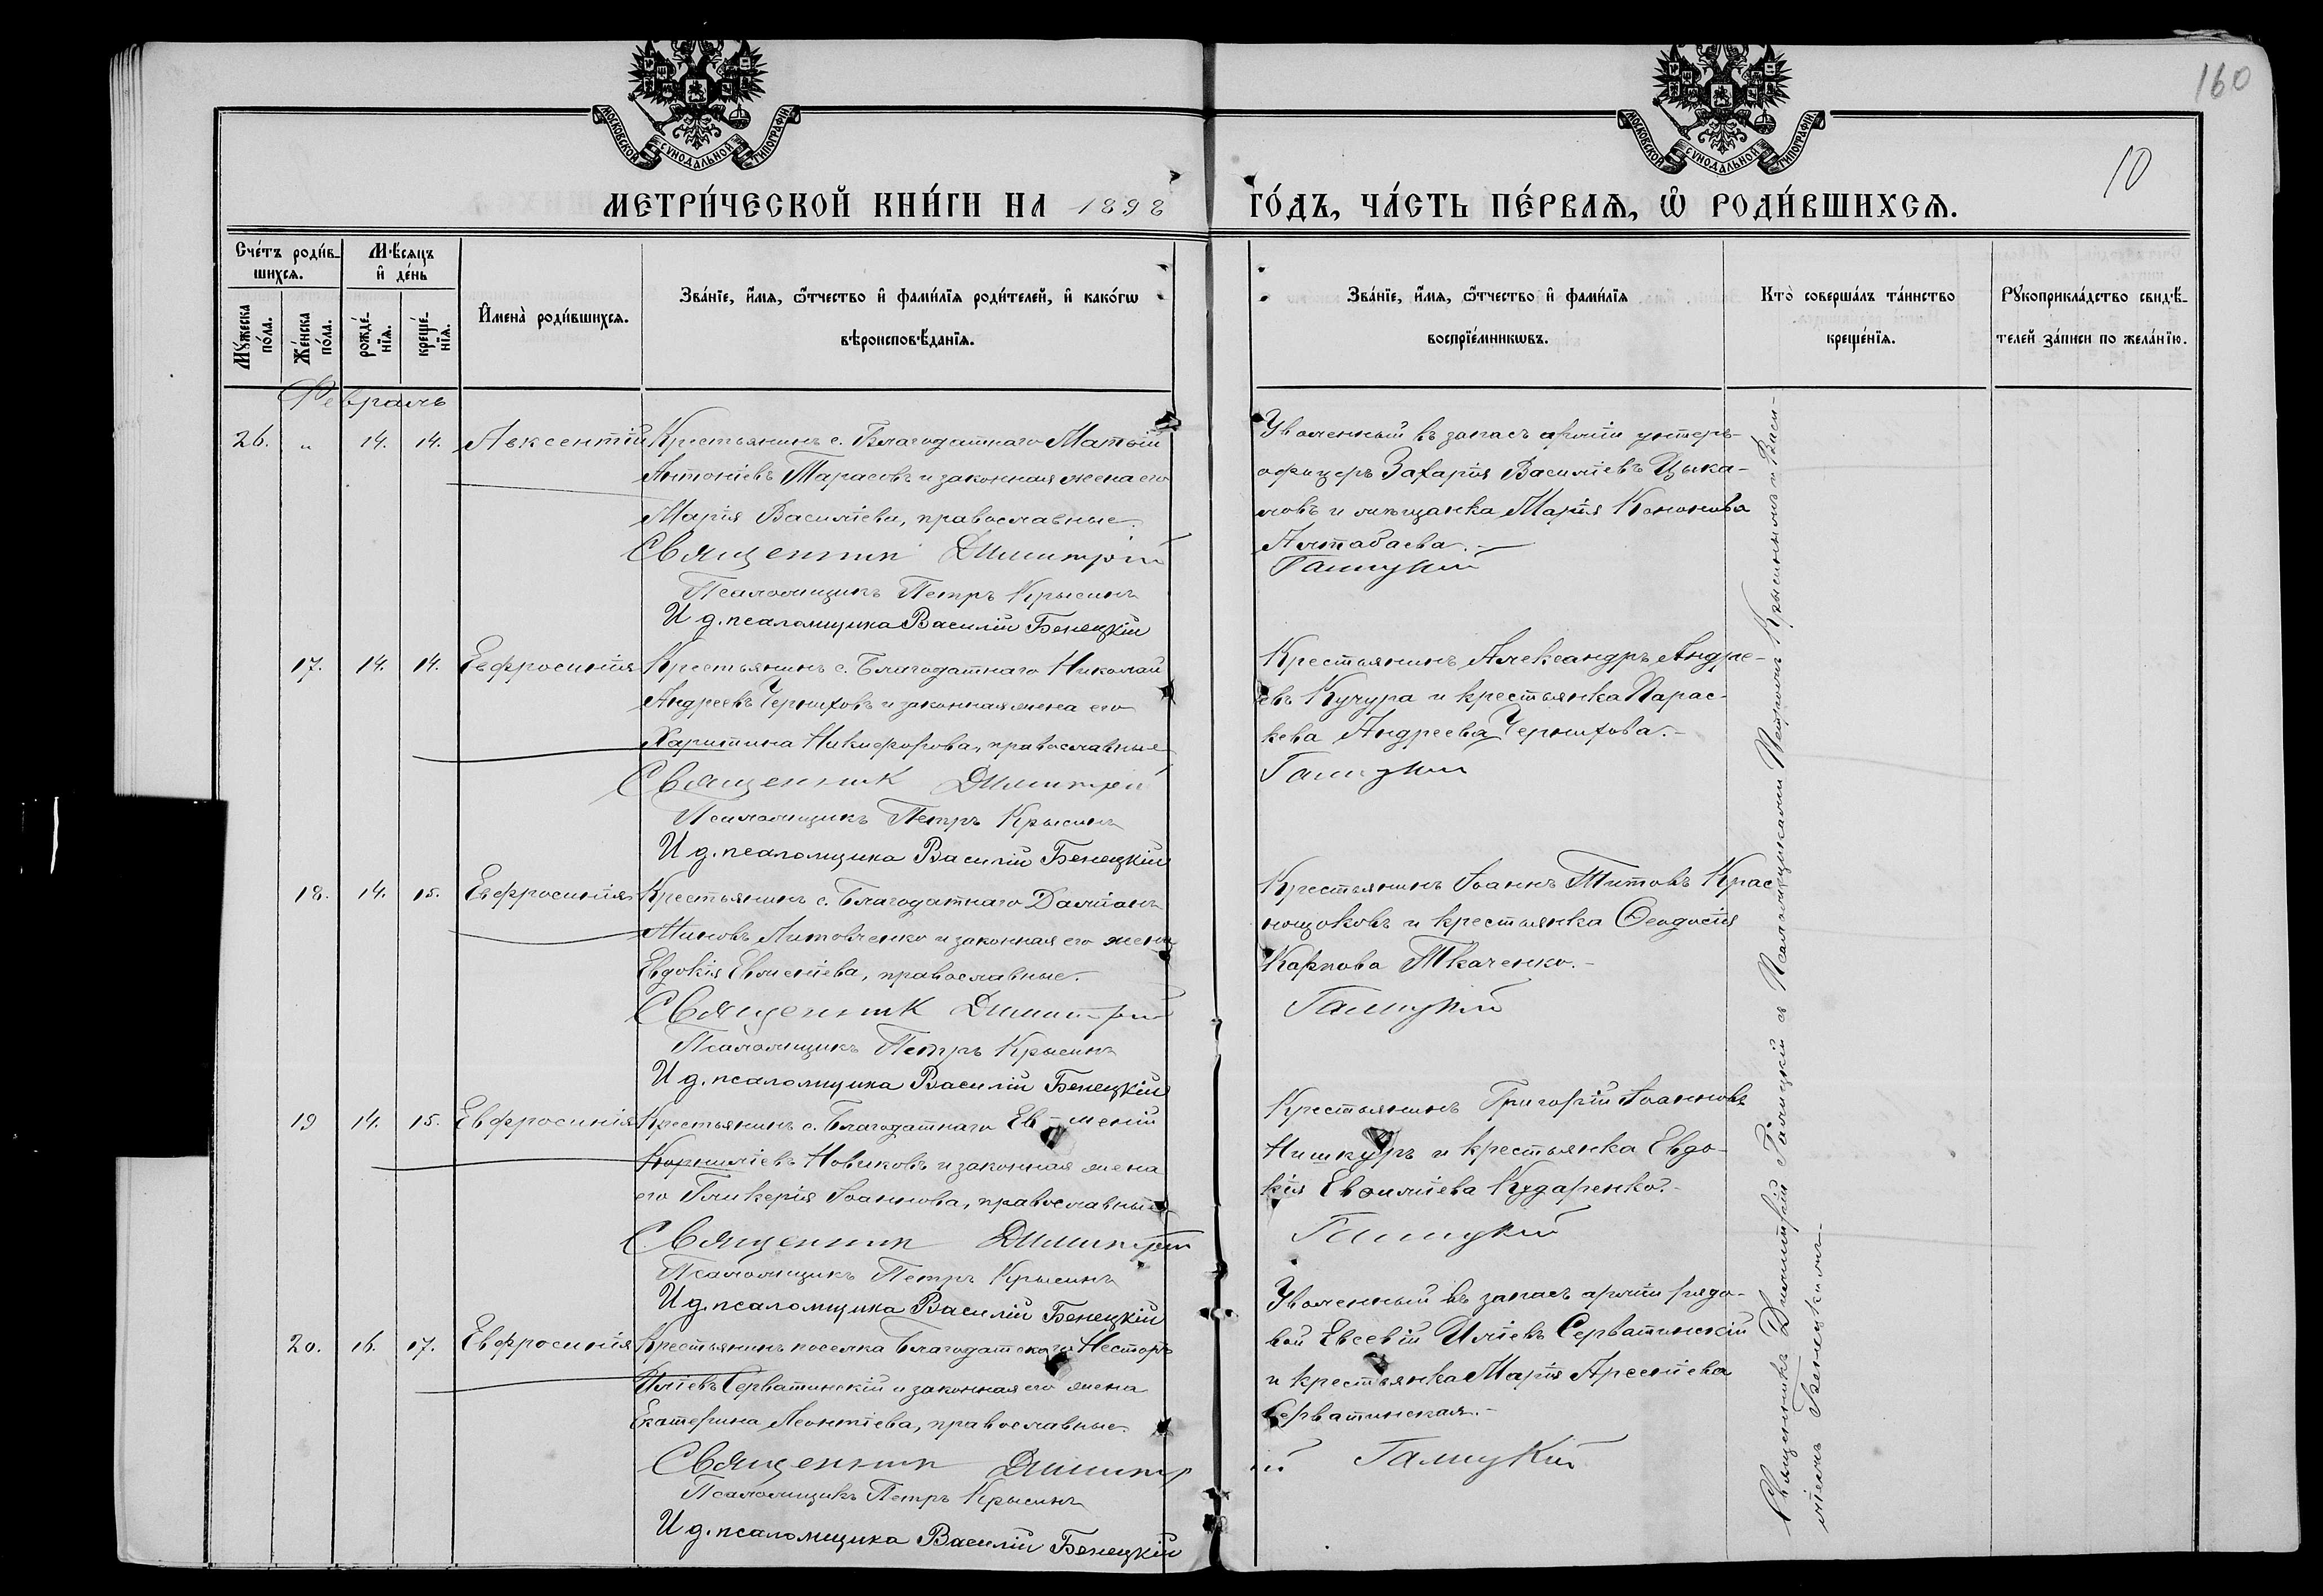 160
10
МОСКОВСКОЙ СѴНОДАЛЬНОЙ ТИПОГРАФІИ
МОСКОВСКОЙ СѴНОДАЛЬНОЙ ТИПОГРАФІИ
МЕТРИ́ЧЕСКОЙ КНИ́ГИ НА 1898 ГО́ДЪ, ЧА́СТЬ ПЕ́РВАѦ, Ѡ҆ РОДИ́ВШИХСѦ.
Сче́тъ роди́в-
шихсѧ.
Мѣ́сѧцъ
и҆ де́нь
Мꙋ́жеска
по́ла.
Же́нска
по́ла.
рожде́-
нїѧ.
креще́-
нїѧ.
И҆мена̀ роди́вшихсѧ.
Зва́нїе, и҆́мѧ, ѻ҆́тчество и҆ фами́лїѧ роди́телей, и҆ како́гѡ
вѣроисповѣ́данїѧ.
Зва́нїе, и҆́мѧ, ѻ҆́тчество и҆ фами́лїѧ
воспрїе́мникѡвъ.
Кто̀ соверша́лъ та́инство
креще́нїѧ.
Рꙋкоприкла́дство свидѣ́-
телей за́писи по жела́нїю.
Февраль
26. " 14. 14. Авксентій Крестьянинъ с. Благодатнаго Матѳій
Антоніевъ Тарасовъ и законная жена его
Марія Василіева, православные.
Священник Димитрій
Псаломщикъ Петръ Крысинъ
И д. псаломщика Василій Бенецкій
Уволенный въ запасъ арміи унтеръ-
офицеръ Захарія Василіевъ Цыка-
ловъ и мѣщанка Марія Кононова
Алтабаева.-
Галицкій
17. 14. 14. Евфросинія Крестьянинъ с. Благодатнаго Николай
Андреевъ Черниховъ и законная жена его
Харитина Никифорова, православные
Священник Димитрій
Псаломщикъ Петръ Крысинъ
И д. псаломщика Василій Бенецкій
Крестьянинъ Александръ Андре-
евъ Кучура и крестьянка Парас-
кева Андреева Чернихова.-
Галицкій
18. 14. 15. Евфросинія Крестьянинъ с. Благодатнаго Даміанъ
Миновъ Литовченко и законная его жена
Евдокія Евменіева, православные.-
Священник Димитрій
Псаломщикъ Петръ Крысинъ
И д. псаломщика Василій Бенецкій
Крестьянинъ Іоаннъ Титовъ Крас-
нощоковъ и крестьянка Ѳеодосія
Карпова Ткаченко.-
Галицкій
19 14. 15. Евфросинія Крестьянинъ с. Благодатнаго Евменій
Корниліевъ Новиковъ и законная жена
его Гликерія Іоаннова, православные
Священник Димитрій
Псаломщикъ Петръ Крысинъ
И д. псаломщика Василій Бенецкій
Крестьянинъ Григорій Іоанновъ
Нишкуръ и крестьянка Евдо-
кія Кударенко.-
Галицкій
20. 16. 17. Евфросинія Крестьянинъ поселка Благодатскаго Несторъ
Иліевъ Серватинскій и законная его жена
Екатерина Леонтіева, православные
Священник Димитрій
Псаломщикъ Петръ Крысинъ
И д. псаломщика Василій Бенецкій
Уволенный въ запасъ арміи рядо-
вой Евсевій Иліевъ Серватинскій
и крестьянка Марія Арсеніева
Серватинская.-
Галицкій
Священникъ Димитрій Галицкій съ Псаломщиками Петромъ Крысинымъ и Васи-
ліемъ Бенецкимъ-